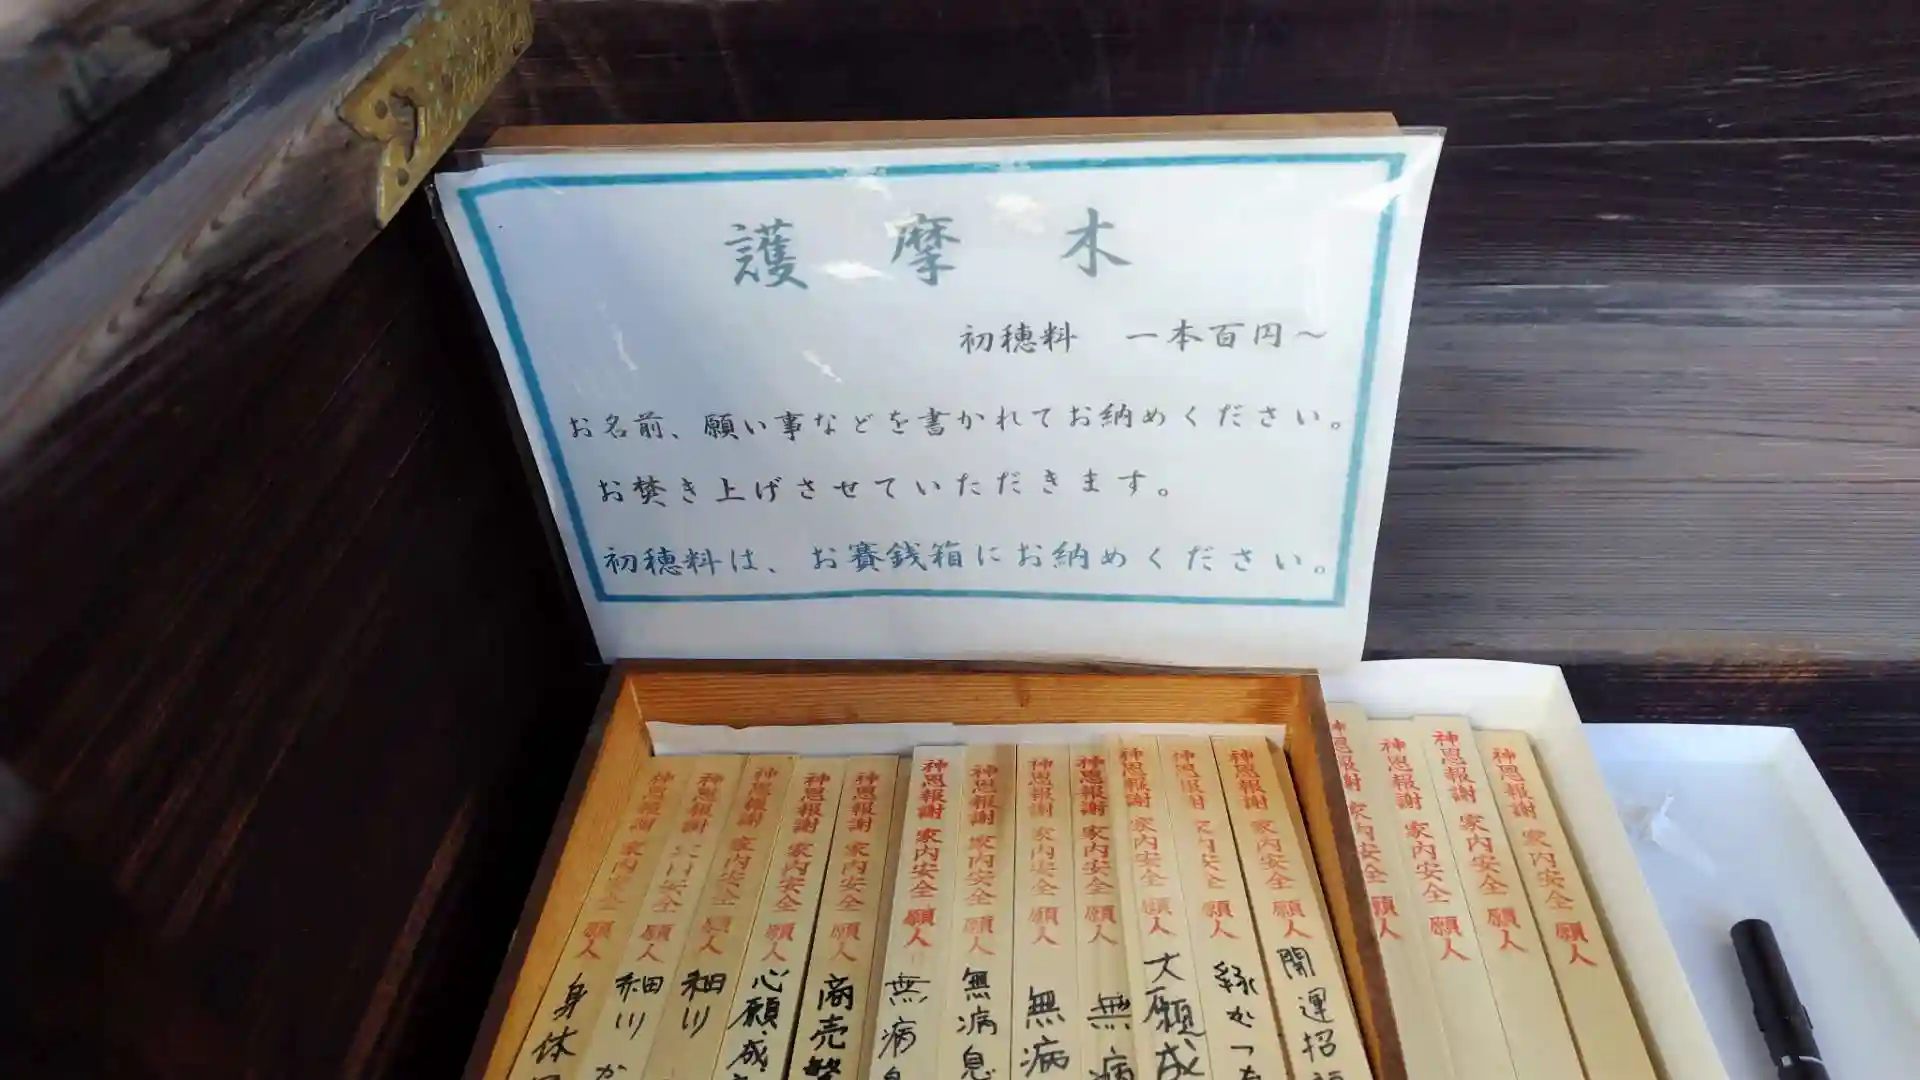 護摩木
初穂料 一本百円～
お名前、願い事などを書かれてお納めください。
お焚き上げさせていただきます。
初穂料は、お賽銭箱にお納めください。
神恩報謝 家内安全 願人 身体
神恩報謝 家内安全 願人 細川 か
神恩報謝 家内安全 願人 細川
神恩報謝 家内安全 願人 心願成
神恩報謝 家内安全 願人 商売繁
神恩報謝 家内安全 願人 無病息
神恩報謝 家内安全 願人 無病息
神恩報謝 家内安全 願人 無病
神恩報謝 家内安全 願人 無病
神恩報謝 家内安全 願人 大願成
神恩報謝 家内安全 願人 縁が
神恩報謝 家内安全 願人 開運招
神恩報謝 家内安全 願人
神恩報謝 家内安全 願人
神恩報謝 家内安全 願人
神恩報謝 家内安全 願人